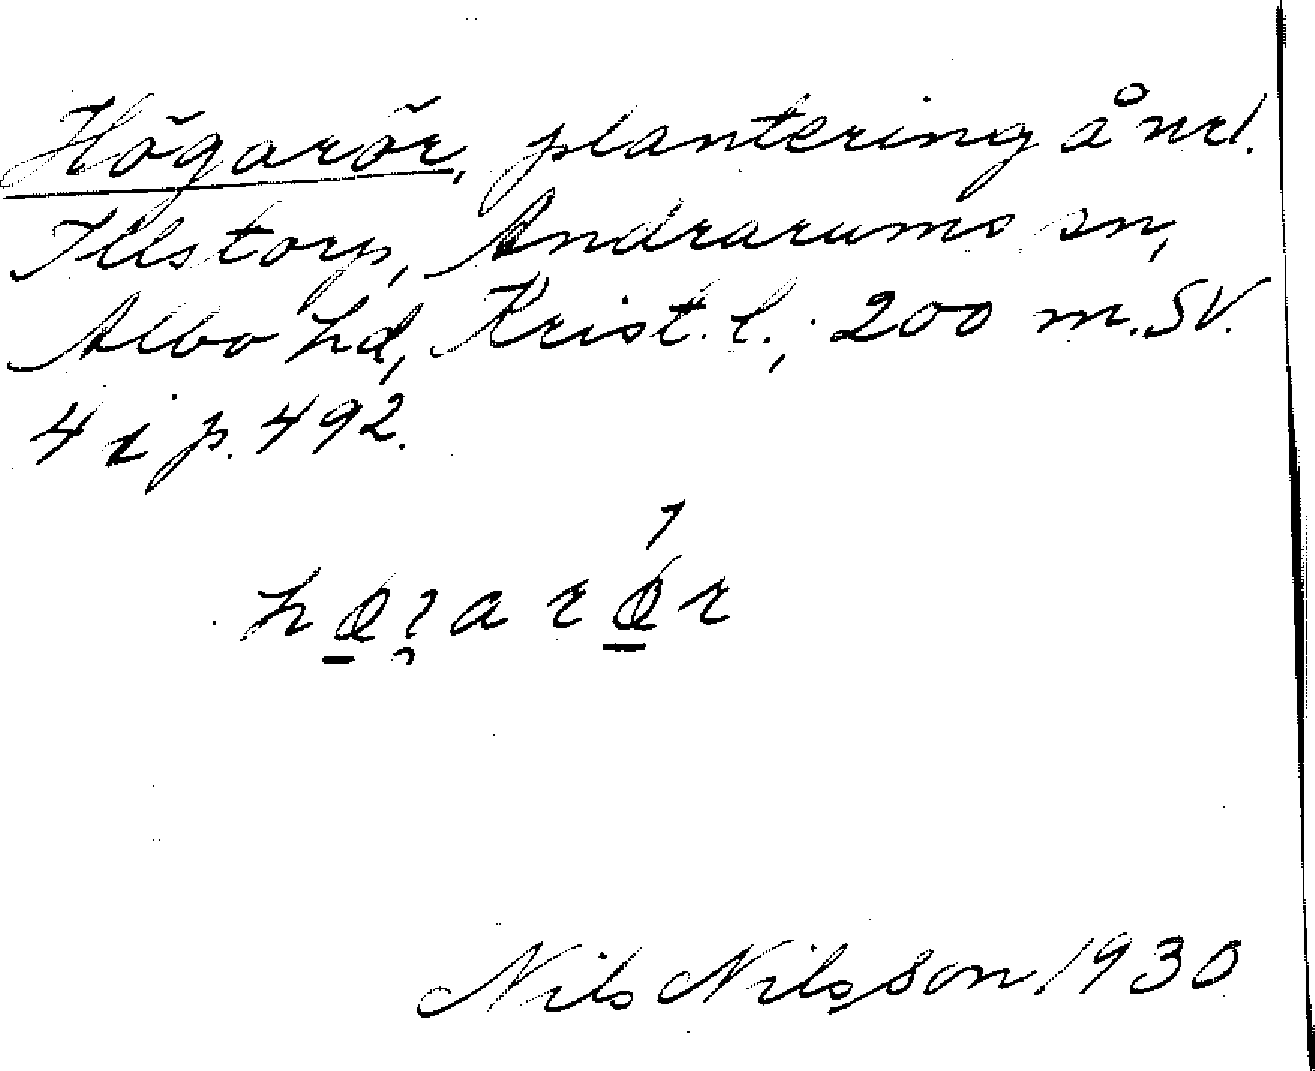 Högarör, plantering å nr 1.
Illstorp, Andrarums sn,
Albo hd, Krist. l.; 200 m. SV.
4 i p. 492.
Nils Nilsson 1930